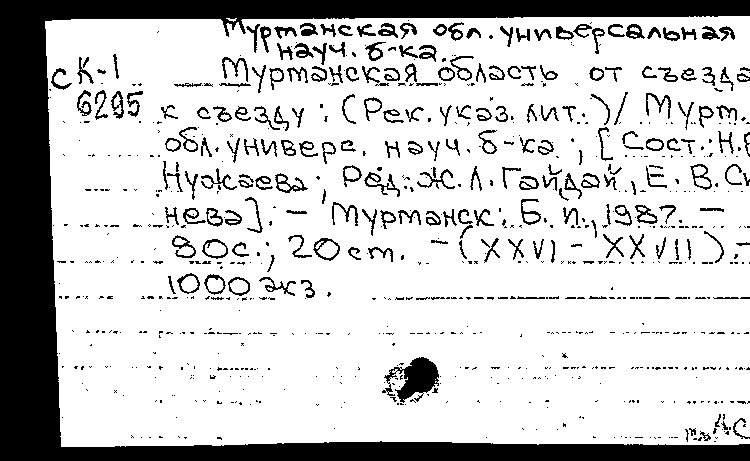 Мурманская обл. универсальная
науч. б-ка.
СК-1 Мурманская область от съезда
6295 к съезду : (Рек. указ. лит.) / Мурм.
обл. универс. науч. б-ка ; [Сост.: Н.
Нужаева ; Ред.: Ж. Л. Гайдай, Е. В. Си
нева]. - Мурманск : Б. и., 1987. -
80с.; 20 cm. - (XXVI - XXVII). -
1000 экз.
АС